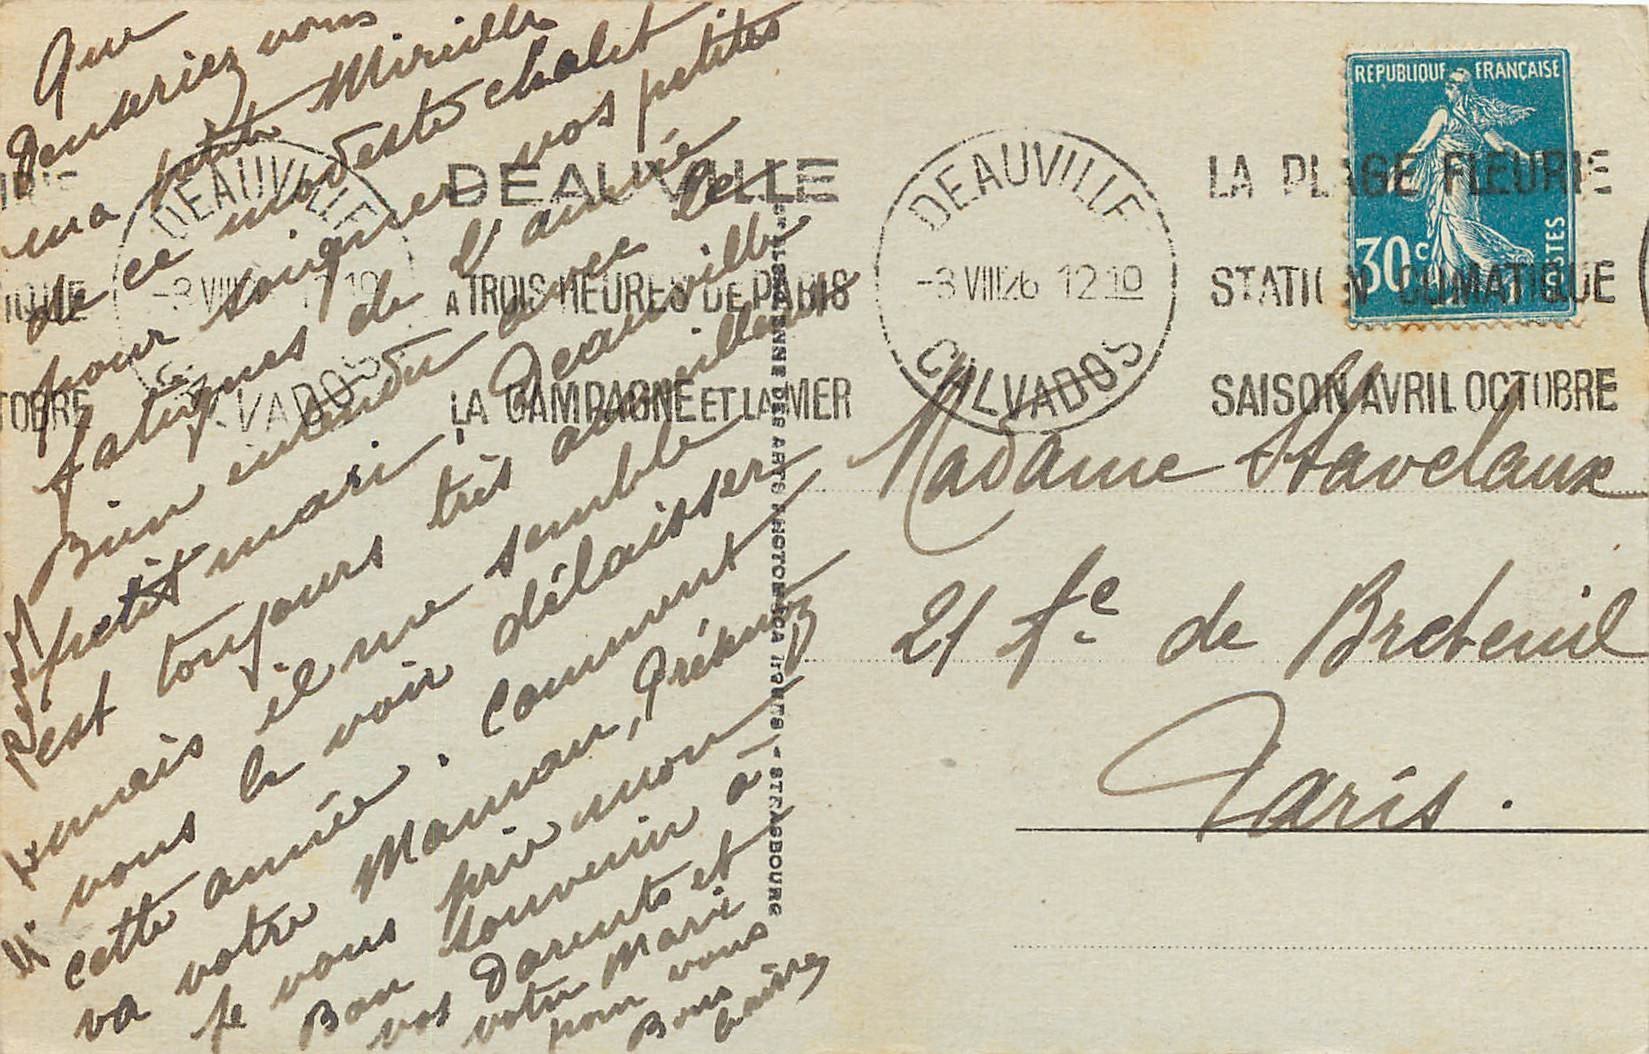 Que
penseriez vous
ma petite Mireille
de ce modeste chalet
pour soigner vos petites
fatigues de l'année
Bien entendu avec le
petit mari, Deauville
est toujours très accueillant
mais il me semble
vous le voir délaisser
cette année. Comment
va votre Maman, Présentez
je vous prie mon
Bon souvenir à
vos Parents et
votre Mari
pour vous
Bons
baisers
DEAUVILLE
CALVADOS
-3 VIII 12 10
DEAUVILLE
A TROIS HEURES DE PARIS
LA CAMPAGNE ET LA MER
DEAUVILLE
-3 VIII 26 12 10
CALVADOS
LA PLAGE FLEURIE
STATION CLIMATIQUE
SAISON AVRIL OCTOBRE
REPUBLIQUE FRANÇAISE
30c
POSTES
TOBRE
ALSACIENNE DES ARTS PHOTOMECANIQUES - STRASBOURG
Madame Stavelaux
21 de Breteuil
Paris.